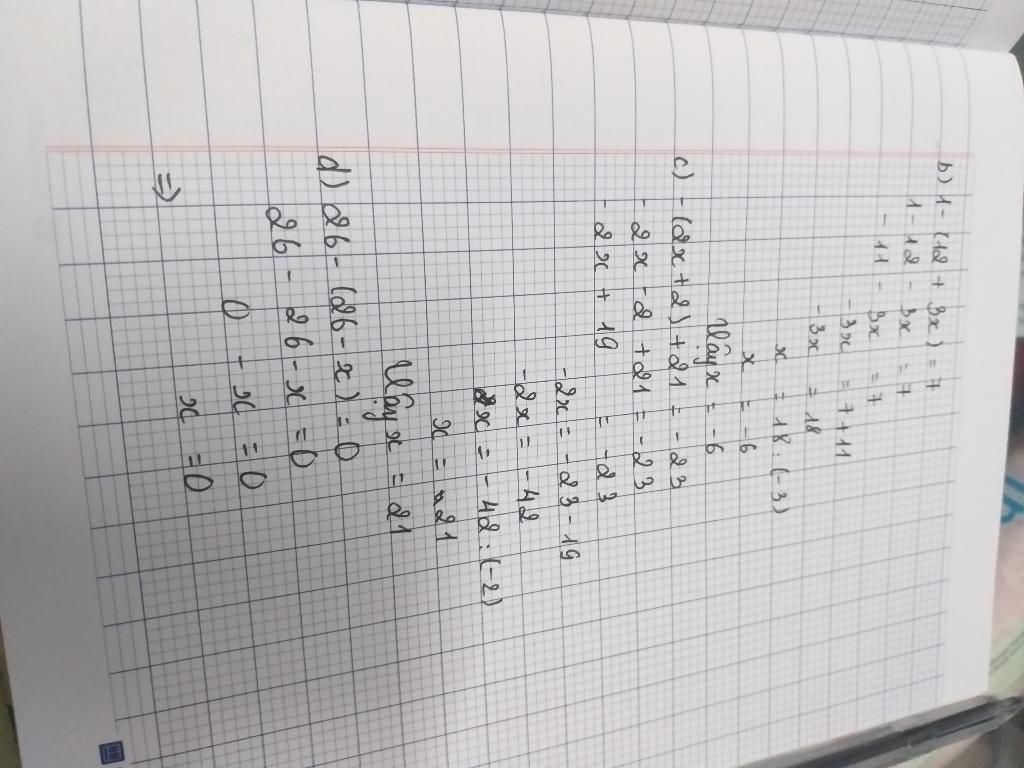 b) 1 - (12 + 3x) = 7
1 - 12 - 3x = 7
- 11 - 3x = 7
-3x = 7 + 11
-3x = 18
x = 18 : (-3)
x = -6
Vậy x = -6
c) - (2x + 2) + 21 = - 23
- 2x - 2 + 21 = - 23
- 2x + 19 = - 23
-2x = - 23 - 19
-2x = - 42
x = - 42 : (-2)
x = 21
Vậy x = 21
d) 26 - (26 - x) = 0
26 - 26 - x = 0
0 - x = 0
x = 0
=>